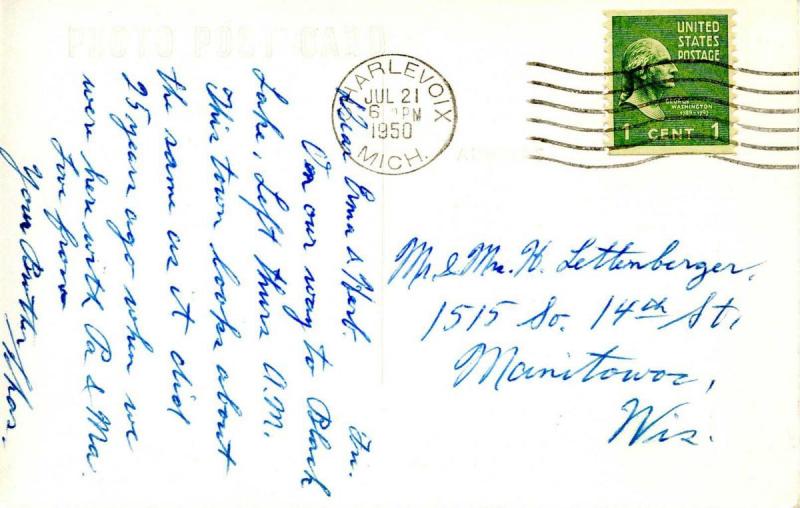 PHOTO POST CARD
CHARLEVOIX
JUL 21
6 PM
1950
MICH.
UNITED
STATES
POSTAGE
GEORGE
WASHINGTON
1789-1797
1 CENT 1
Fri.
Dear Erma & Herb.
On our way to Black
Lake, Left Thurs A.M.
This town looks about
the same as it did
25 years ago when we
were here with Pa & Ma.
Love from
Your Brother
Chas.
Mr. & Mrs. H. Lettenberger,
1515 So. 14th St,
Manitowoc,
Wis.